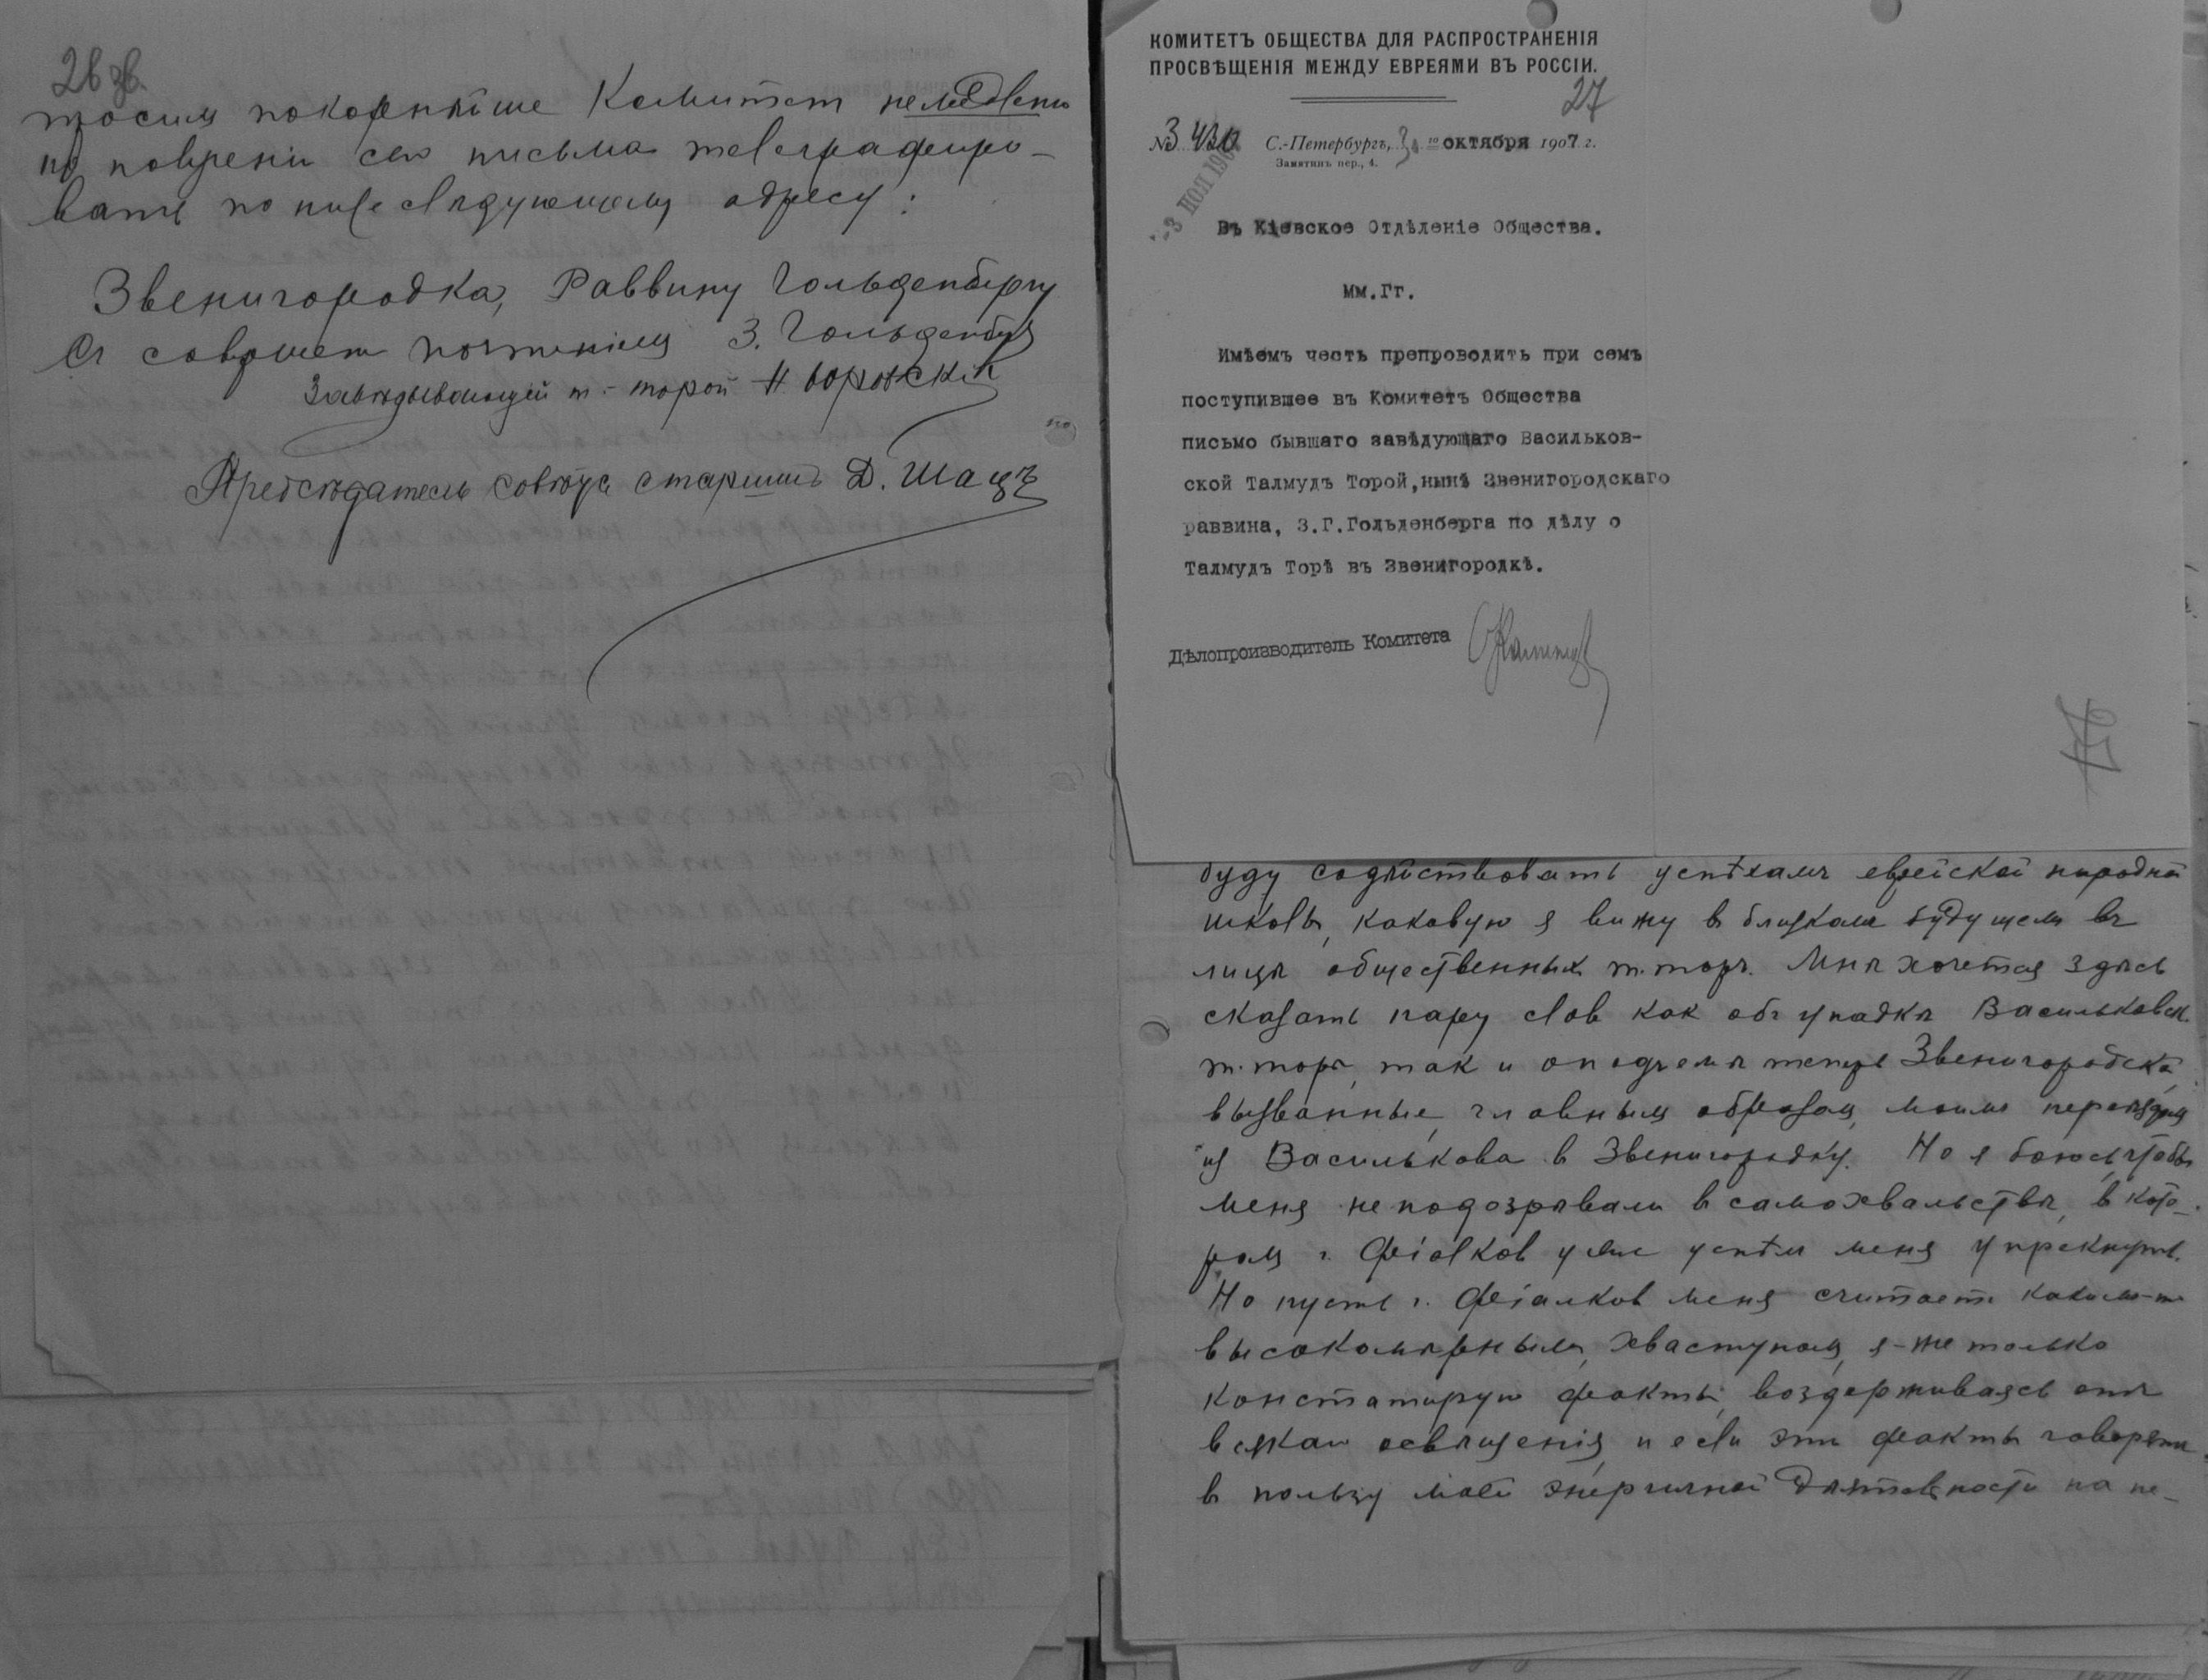 26 зв.
просим покорнѣйше Комитет немедленно
по полученіи сего письма телеграфиро-
вать по нижеслѣдующему адресу:
Звенигородка, Раввину Гольденбергу
Съ совершен почтеніем З. Гольденберг
Завѣдывающей т.-торой Н.
Предсѣдатель совѣта старшин Д. Шацъ
КОМИТЕТЪ ОБЩЕСТВА ДЛЯ РАСПРОСТРАНЕНІЯ
ПРОСВѢЩЕНІЯ МЕЖДУ ЕВРЕЯМИ ВЪ РОССІИ.
27
№ 3430 С.-Петербургъ, 31 го октября 1907 г.
Замятинъ пер., 4.
-3 НОЯ 1907
Въ Кіевское Отдѣленіе Общества.
Мм.Гг.
Имѣемъ честь препроводить при семъ
поступившее въ Комитетъ Общества
письмо бывшаго завѣдующаго Васильков-
ской Талмудъ Торой, нынѣ Звенигородскаго
раввина, З.Г.Гольденберга по дѣлу о
Талмудъ Торѣ въ Звенигородкѣ.
Дѣлопроизводитель Комитета
буду содѣйствовать успѣхамъ еврейской народной
школы, каковую я вижу в близкомъ будущемъ въ
лицѣ общественных т.торъ. Мнѣ хочется здѣсь
сказать пару слов как объ упадкѣ Васильковск.
т.торы, так и о подъемѣ теперь Звенигородской,
вызванные, главным образом, моимъ переѣздом
из Василькова в Звенигородку. Но я боюсь, чтобы
меня не подозрѣвали в самохвальствѣ, в кото-
ром г. Фіалков уже успѣл меня упрекнуть.
Но пусть г. Фіалков меня считает каким-то
высокомѣрнымъ, хвастуном, я-же только
констатирую факты, воздерживаясь отъ
всякаго освѣщенія, и если эти факты говорят
в пользу моей энергичной дѣятельности на по-